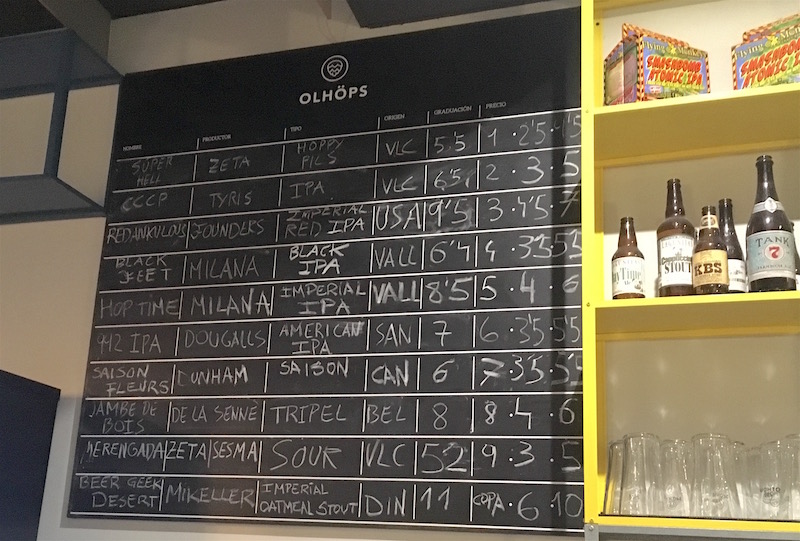 OLHÖPS
NOMBRE PRODUCTOR TIPO ORIGEN GRADUACIÓN PRECIO
SUPER HELL ZETA HOPPY PILS VLC 5,5 1 · 2'5 ·
CCCP TYRIS IPA VLC 6'5 2 · 3 5
REDANKULOUS FOUNDERS IMPERIAL RED IPA USA 9'5 3 · 4'5 · 7
BLACK MILANA BLACK IPA VALL 6'4 4 · 3'5 5'5
HOP TIME MILANA IMPERIAL IPA VALL 8'5 5 · 4 · 6
942 IPA DOUGALLS AMERICAN IPA SAN 7 6 · 3'5 · 5'5
SAISON FLEURS DUNHAM SAISON CAN 6 7 · 3'5 · 5'5
JAMBE DE BOIS DE LA SENNE TRIPEL BEL 8 8 · 4 · 6
MERENGADA ZETA|SESMA SOUR VLC 52 9 · 3 · 5
BEER GEEK DESERT MIKELLER IMPERIAL OATMEAL STOUT DIN 11 COPA · 6 · 10
Flying Monkeys
SMASHBOMB
ATOMIC IPA
STOUT
KBS
TANK
7